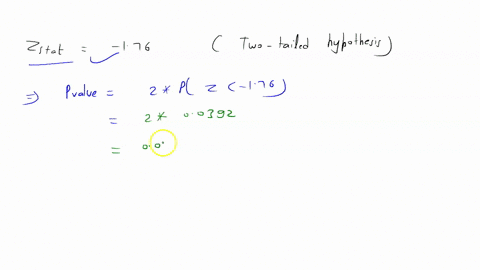 Zstat = -1.76 ( Two-tailed hypothesis)
⇒ Pvalue = 2 * P( Z < -1.76)
= 2 * 0.0392
= 0.0